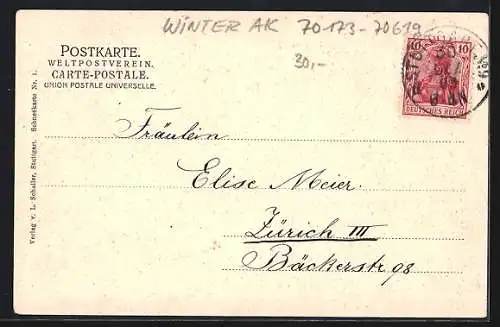 WINTER AK 70173-70619
30,-
POSTKARTE.
WELTPOSTVEREIN.
CARTE-POSTALE.
UNION POSTALE UNIVERSELLE.
10 10
DEUTSCHES REICH
Fräulein
Elise Meier.
Zürich III
Bäckerstr 98
Verlag v. L. Schaller, Stuttgart. Schneekarte Nr. 1.